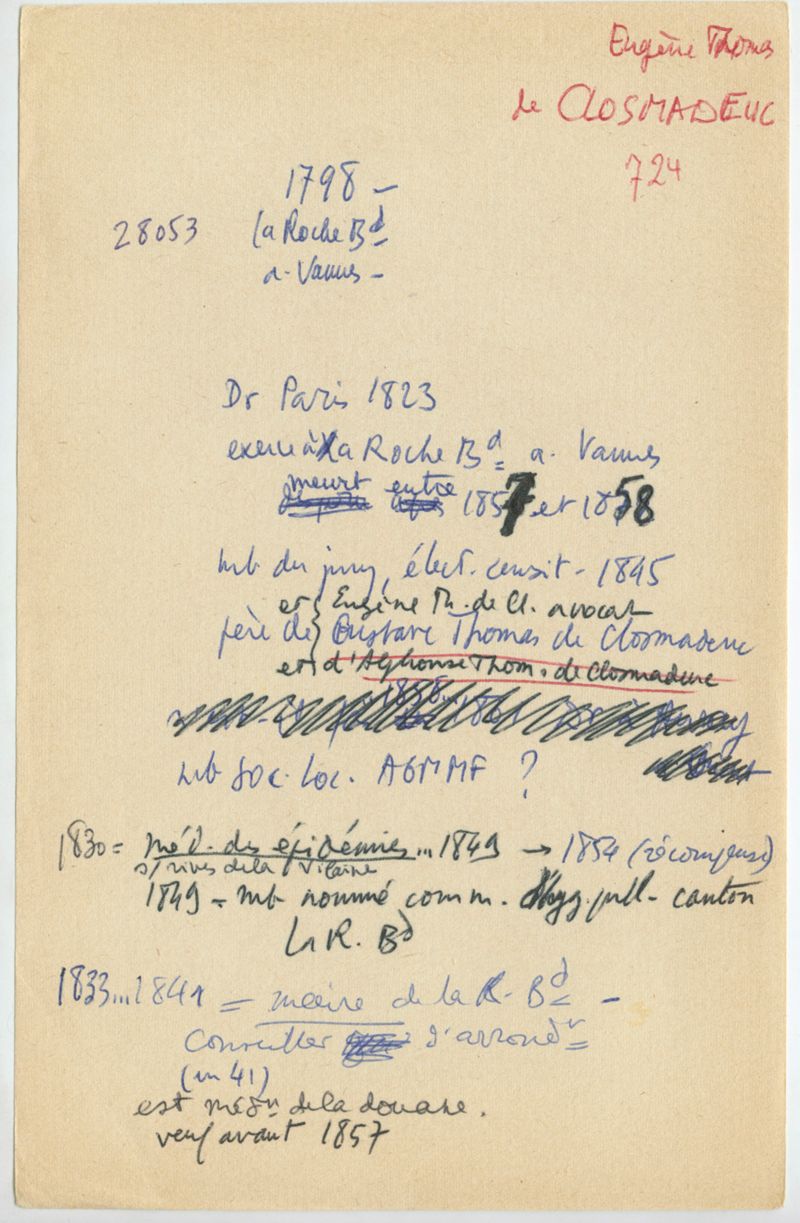 Eugène Thomas
de CLOSMADEUC
724
1798 -
28053 la Roche Bd
a. Vannes -
Dr Paris 1823
exerce à la Roche Bd a. Vannes
meurt entre
1857 et 1858
mb du jury, élect. censit - 1845
et Eugène Th. de Cl. avocat
père de Gustave Thomas de Closmadeuc
et d'Alphonse Thom. de Closmadeuc
mb soc. loc. AGMMF ?
1830 = méd. des épidémies... 1849 → 1854 (récompense)
s/ rives de la Vilaine
1849 = mb nommé comm. d'hyg. publ. canton
La R. Bd
1833...1841 = maire de la R. Bd -
Conseiller d'arrondt
(en 41)
est médn de la douane.
veuf avant 1857